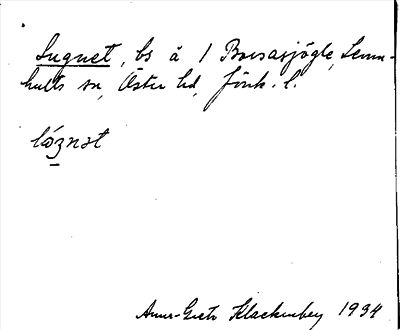 Lugnet, bs å 1 Boesasjögle, Lemn-
hults sn, Öster hd, Jönk. l.
lóznət
Ann-Greta Klackenberg 1934